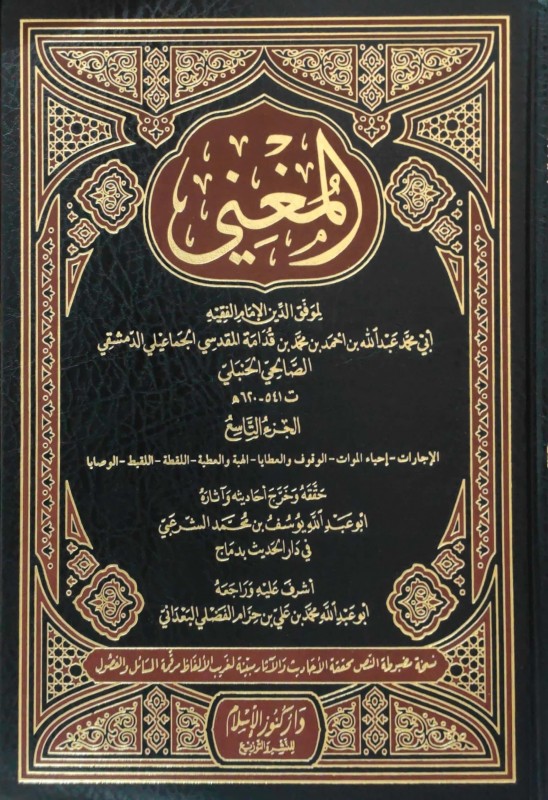 المُغْنِي
لموفق الدين الإمام الفقيه
أبي محمد عبد الله بن أحمد بن محمد بن قدامة المقدسي الجماعيلي الدمشقي
الصالحي الحنبلي
ت ٥٤١-٦٢٠هـ
الجزء التاسع
الإجارات - إحياء الموات - الوقوف والعطايا - الهبة والعطية - اللقطة - اللقيط - الوصايا
حققه وخرج أحاديثه وآثاره
أبو عبد الله يوسف بن محمد الشرعبي
في دار الحديث بدماج
أشرف عليه وراجعه
أبو عبد الله محمد بن علي بن حزام الفضلي البعداني
نسخة مضبوطة النص محققة الأحاديث والآثار مبينة لغريب الألفاظ مرقمة المسائل والفصول
دار كنوز الإسلام
للنشر والتوزيع